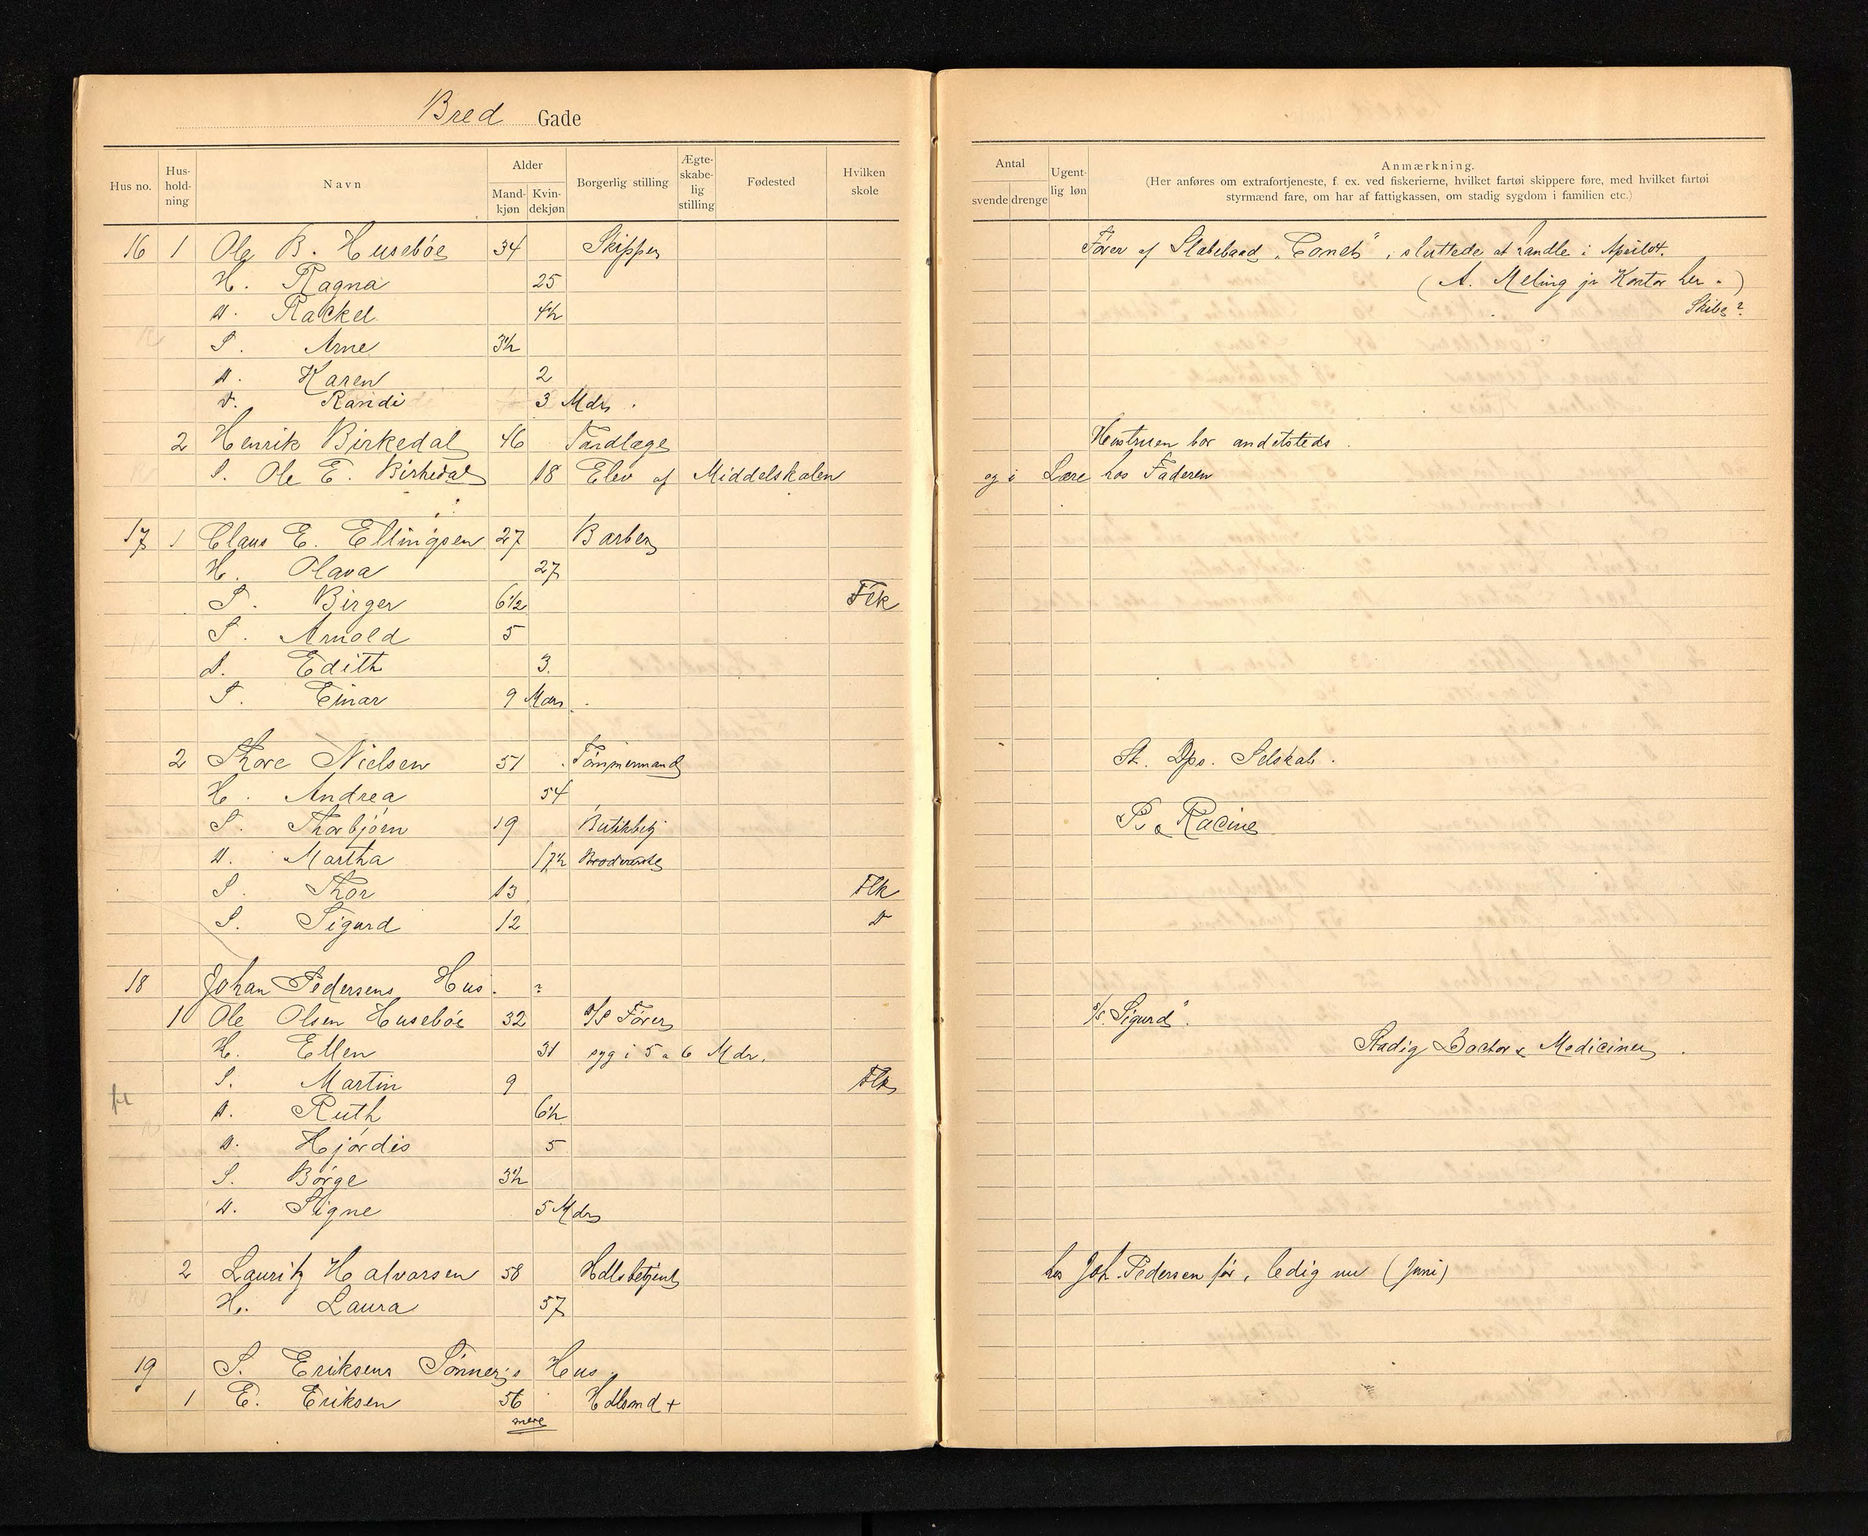 Bred Gade
Hus no. Hus-hold-ning Navn Alder Mand-kjøn Kvin-dekjøn Borgerlig stilling Ægte-skabe-lig stilling Fødested Hvilken skole Antal svende drenge Ugent-lig løn Anmærkning.
(Her anføres om extrafortjeneste, f. ex. ved fiskerierne, hvilket fartøi skippere føre, med hvilket fartøi
styrmænd fare, om har af fattigkassen, om stadig sygdom i familien etc.)
16 1 Ole B. Husebøe 34 Skipper Fører af "Comet", sluttede at handle i April 04.
H. Ragna 25 (A. Meling jr Kontor her.)
D. Rackel 4½ Skibe?
S. Arne 3½
D. Karen 2
D. Randi 3 Mdr.
2 Henrik Birkedal 46 Tandlæge Hustruen bor andetsteds.
S. Ole E. Birkedal 18 Elev af Middelskolen og i Lære hos Faderen
17 1 Claus E. Ellingsen 27 Barber
H. Olava 27
S. Birger 6½ Flk
S. Arnold 5
D. Edith 3.
S. Einar 9 Mdr.
2 Thore Nielsen 51 Tømmermand St. Dps. Selskab.
H. Andrea 54
S. Thorbjørn 19 Butikbetj P. & Racine
D. Martha 17½
S. Thor 13 Flk
S. Sigurd 12 D
18 Johan Pedersens Hus. ?
1 Ole Olsen Husebøe 32 D/S Fører S/S "Sigurd".
H. Ellen 31 syg i 5 a 6 Mdr. Stadig Doctor & Mediciner.
S. Martin 9 Flk
D. Ruth 6½
D. Hjørdis 5
S. Børge 3½
D. Signe 5 Mdr
2 Lauritz Halvorsen 58 Hdlsbetjent hos Joh. Pedersen før, ledig nu (Juni)
H. Laura 57
19 S. Eriksens Sønner's Hus.
1 E. Eriksen 56 Hdlsmd +
mere